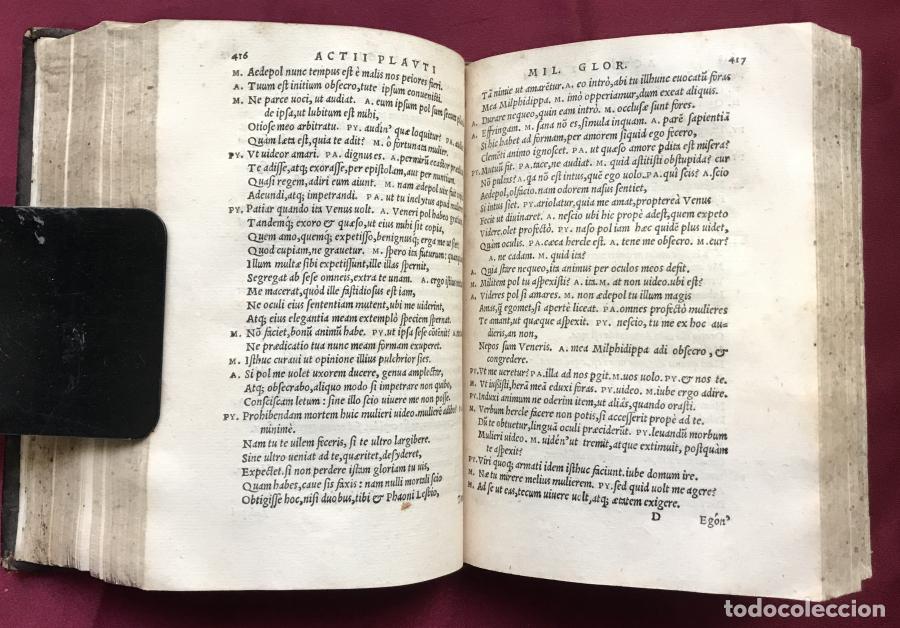 416 ACTII PLAVTI
M. Aedepol nunc tempus est è malis nos peiores fieri.
A. Tuum est initium obsecro, tute ipsum conuenisti.
M. Ne parce uoci, ut audiat. A. cum ipsum pol sum
de ipsa, ut lubitum est mihi,
Otiose meo arbitratu. PY. audin' quæ loquitur? PA.
Quàm læta est, quia te adit? M. ô fortunatam mulier.
PY. Vt uideor amari. PA. dignus es. A. permirũ
Te adisse, atq; exorasse, per epistolam, aut per nuntium.
Quasi regem, adiri eum aiunt. M. nam ædepol uix fuit
Adeundi, atq; impetrandi. PA. ut tu inclytus apud
PY. Patiar quando ita Venus uolt. A. Veneri pol habeo
Tandemq; exoro & quæso, ut eius mihi sit copia,
Quem amo, quemq; expetisso, benignusq; erga me ut siet
Quod cupiam, ne grauetur. M. spero ita futurum: quanquam
Illum multæ sibi expetissunt, ille illas spernit,
Segregat ab sese omneis, extra te unam. A. ergo
Me macerat, quòd ille fastidiosus est iam,
Ne oculi eius sententiam mutent, ubi me uiderint,
Atq; eius elegantia meam extemplò speciem spernat.
M. Nõ faciet, bonũ animũ habe. PY. ut ipsa sese
Ne prædicatio tua nunc meam formam exuperet.
M. Isthuc curaui ut opinione illius pulchrior sies.
A. Si pol me uolet uxorem ducere, genua amplectar,
Atq; obsecrabo, aliquo modo si impetrare non quabo,
Consciscam letum: sine illo scio uiuere me non posse.
PY. Prohibendam mortem huic mulieri uideo. mulierẽ
minimè.
Nam tu te uilem feceris, si te ultro largibere.
Sine ultro ueniat ad te, quæritet, desyderet,
Expectet. si non perdere istam gloriam tu uis,
Quam habes, caue sis faxis: nam nulli mortali scio
Obtigisse hoc, nisi duobus, tibi & Phaoni Lesbio,
MIL. GLOR. 417
Tã nimie ut amaretur. A. eo intrò, abi tu illhunc euocatũ foras
Mea Milphidippa. M. imò opperiamur, dum exeat aliquis.
A. Durare nequeo, quin eam intrò. M. occlusæ sunt fores.
A. Effringam. M. sana nõ es, simula inquam. A. parẽ sapientiã
Si hic habet ad formam, per amorem siquid ego fecero,
Clemẽti animo ignoscet. PA. ut quæso amore pdita est misera?
PY. Mutuũ fit. PA. tace, ne audiat. M. quid astitisti obstupida? cur
Nõ pulxas? A. qa nõ est intus, què ego uolo. PA. quî scis? A. scio
Aedepol, olfacio, nam odorem nasus sentiet,
Si intus siet. PY. ariolatur, quia me amat, proptereà Venus
Fecit ut diuinaret. A. nescio ubi hic propè adest, quem expeto
Videre, olet profectò. PY. naso pol iam hæc quidẽ plus uidet,
Quàm oculis. PA. cæca hercle est. A. tene me obsecro. M. cur?
A. ne cadam. M. quid ita?
A. Quia stare nequeo, ita animus per oculos meos defit.
M. Militem pol tu aspexisti? A. ita. M. at non uideo. ubi est?
A. Videres pol si amares. M. non ædepol tu illum magis
Amas, q̃ egomet, si apertè liceat. PA. omnes profectò mulieres
Te amant, ut quæque aspexit. PY. nescio, tu me ex hoc au-
dieris, an non,
Nepos sum Veneris. A. mea Milphidippa adi obsecro, &
congredere.
PY. Vt me ueretur? PA. illa ad nos pgit. M. uos uolo. PY. & nos te.
M. Vt iussisti, herã meã eduxi foras. PY. uideo. M. iube ergo adire.
PY. Induxi animum ne oderim item, ut aliâs, quando orasti.
M. Verbum hercle facere non potis, si accesserit propè ad te.
Dũ te obtuetur, linguã oculi præciderũt. PY. leuandũ morbum
Mulieri uideo. M. uidẽn' ut tremit, atque extimuit, postquàm
te aspexit?
PY. Viri quoq; armati idem isthuc faciunt. iube domum ire.
M. Næ tu mirere melius mulierem. PY. sed quid uolt me agere?
M. Ad se ut eas, tecum uiuere uolt, atq; ætatem exigere.
D Egón'
todocoleccion